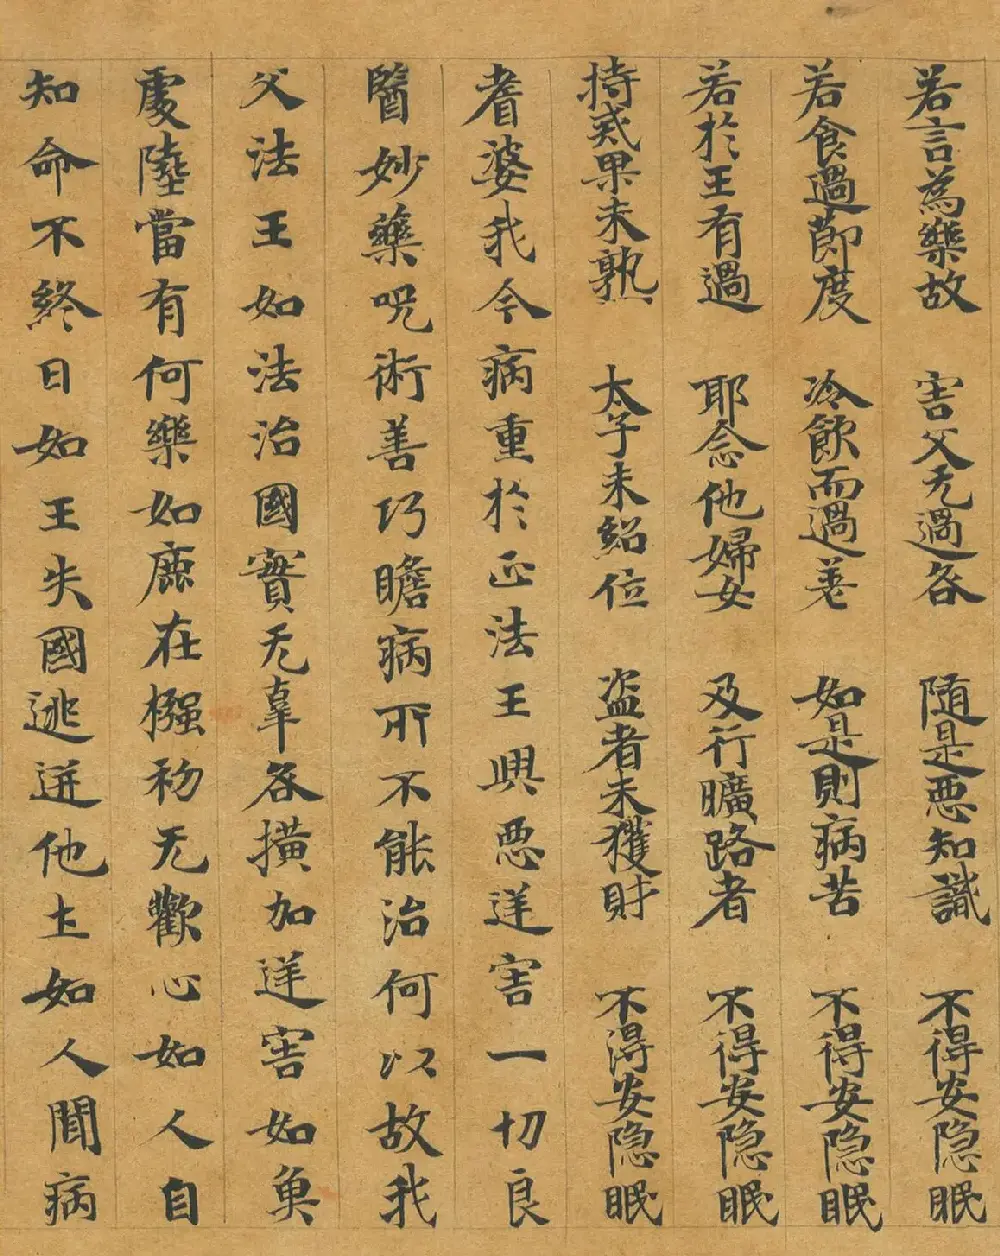 若言為樂故 害父无過各 随是惡知識 不得安隐眠
若食過節度 冷飲而過差 如是則病苦 不得安隐眠
若於王有過 耶念他婦女 及行曠路者 不得安隐眠
持戒果未熟 太子未紹位 盜者未獲財 不得安隐眠
耆婆我今病重於正法王興惡逆害一切良
醫妙藥咒術善巧瞻病所不能治何以故我
父法王如法治國實无辜各撗加逆害如魚
處陸當有何樂如鹿在摾初无歡心如人自
知命不終日如王失國逃迸他土如人聞病